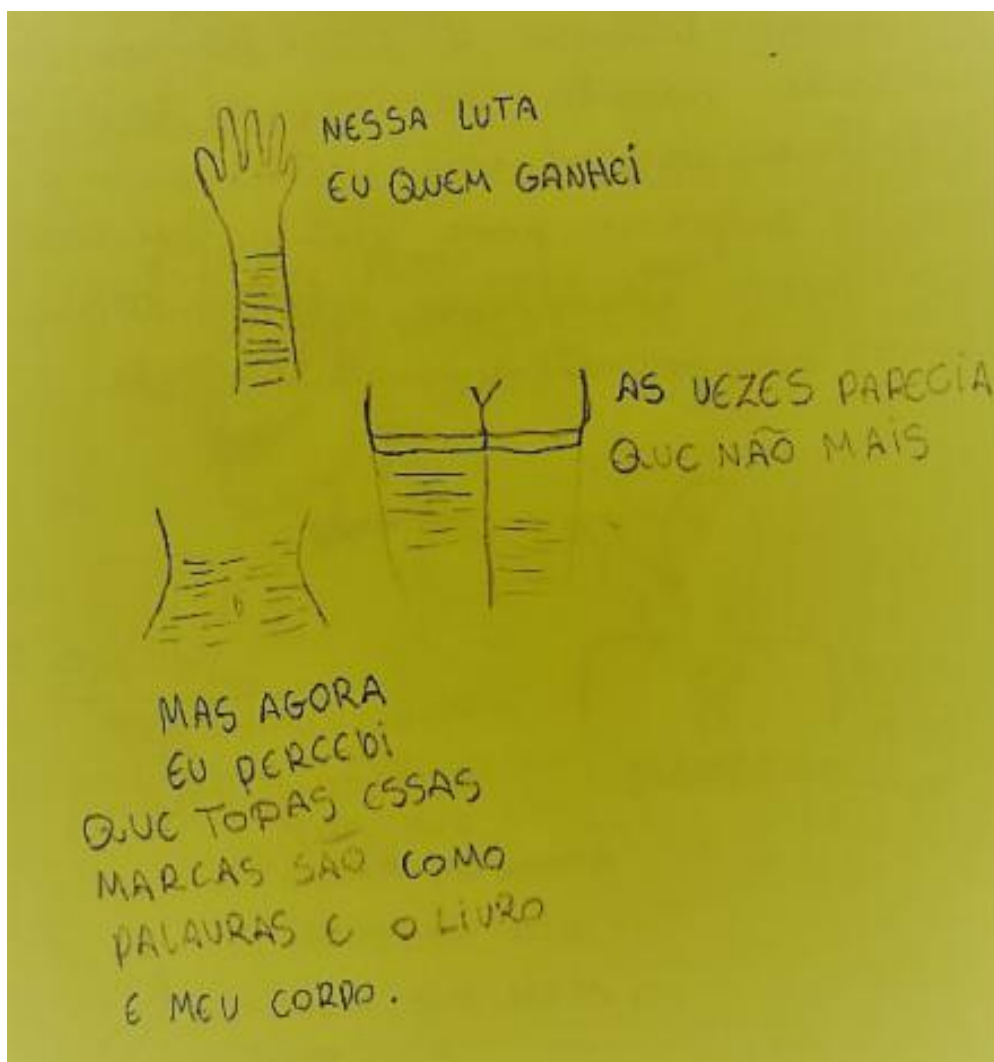 NESSA LUTA
EU QUEM GANHEI
AS VEZES PARECIA
QUE NÃO MAIS
MAS AGORA
EU PERCEBI
QUE TODAS ESSAS
MARCAS SÃO COMO
PALAVRAS E O LIVRO
E MEU CORPO.